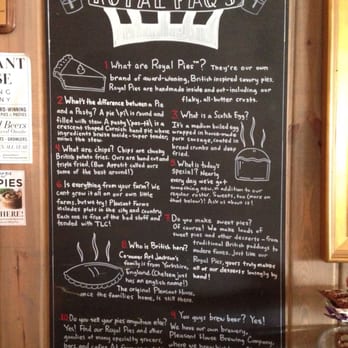 ROYAL FAQ'S
1 What are Royal Pies™? They're our own
brand of award-winning, British inspired savory pies.
Royal Pies are handmade inside and out-including our
flaky, all-butter crusts.
2 What's the difference between a Pie
and a Pasty? A pie \pī\ is round and
filled with stew. A pasty \'pas-tē\ is a
crescent shaped Cornish hand pie whose
ingredients braise inside--super tender,
minus the stew.
3 What is a Scotch Egg?
It's a medium boiled egg
wrapped in house-made
pork sausage, coated in
bread crumbs and deep
fried.
4 What are chips? Chips are chunky
British potato fries. Ours are hand cut and
triple fried. (Bon Appetit called ours
some of the best around!)
5 What is today's
special? Nearly
every day we've got
something new, in addition to our
regular roster. Sweets, too (more on
that below)! Ask us about it!
6 Is everything from your farm? We
can't grow it all on our own little
farms, but we try! Pleasant Farms
includes plots in the city and country.
Each one is free of the bad stuff and
tended with TLC!
7 Do you make sweet pies?
Of course! We make loads of
sweet pies and other desserts - from
traditional British puddings to
modern faves. Just like our
Royal Pies, yours truly makes
all of our desserts lovingly by
hand!
8 Who is British here?
Co-owner Art Jackson's
family is from Yorkshire,
England. (Chelsea just
has an english name!)
The original Pleasant House,
once the families home, is still there.
10 Do you sell your pies anywhere else?
Yes! Find our Royal Pies and other
goodies at many specialty grocers,
9 You guys brew beer? Yes!
We have our own brewery,
Pleasant House Brewing Company,
PIES
HERE!